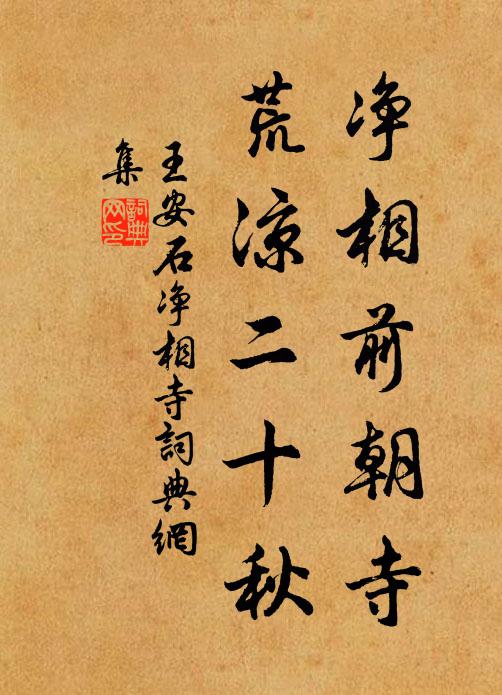 净相前朝寺
荒凉二十秋
王安石净相寺詞典網
集
詞典網印